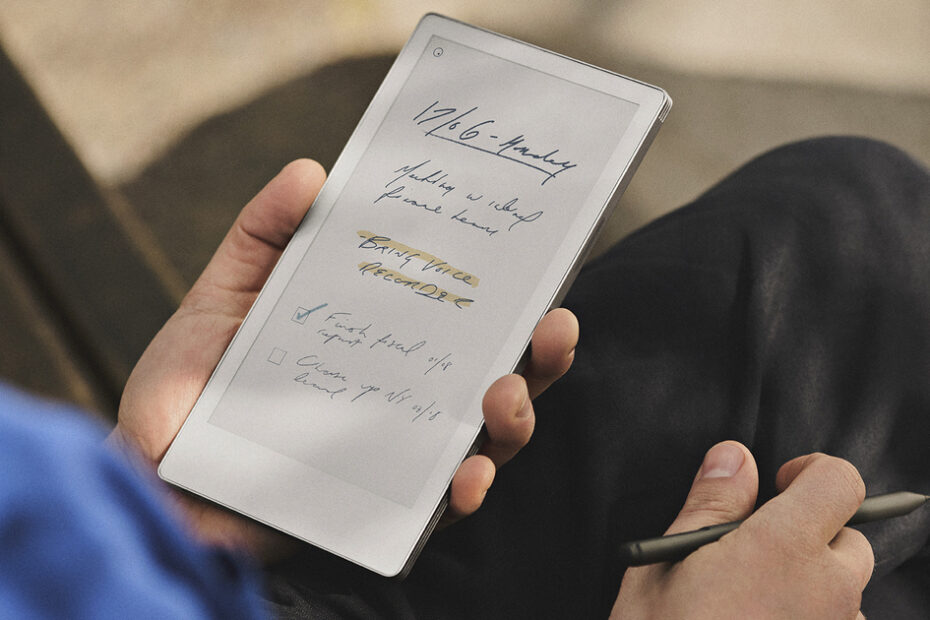 17/06 - Monday
Meeting w
finance team
BRING VOICE
RECORDER
Finish fiscal 01/08
report
Close up NY 02/18